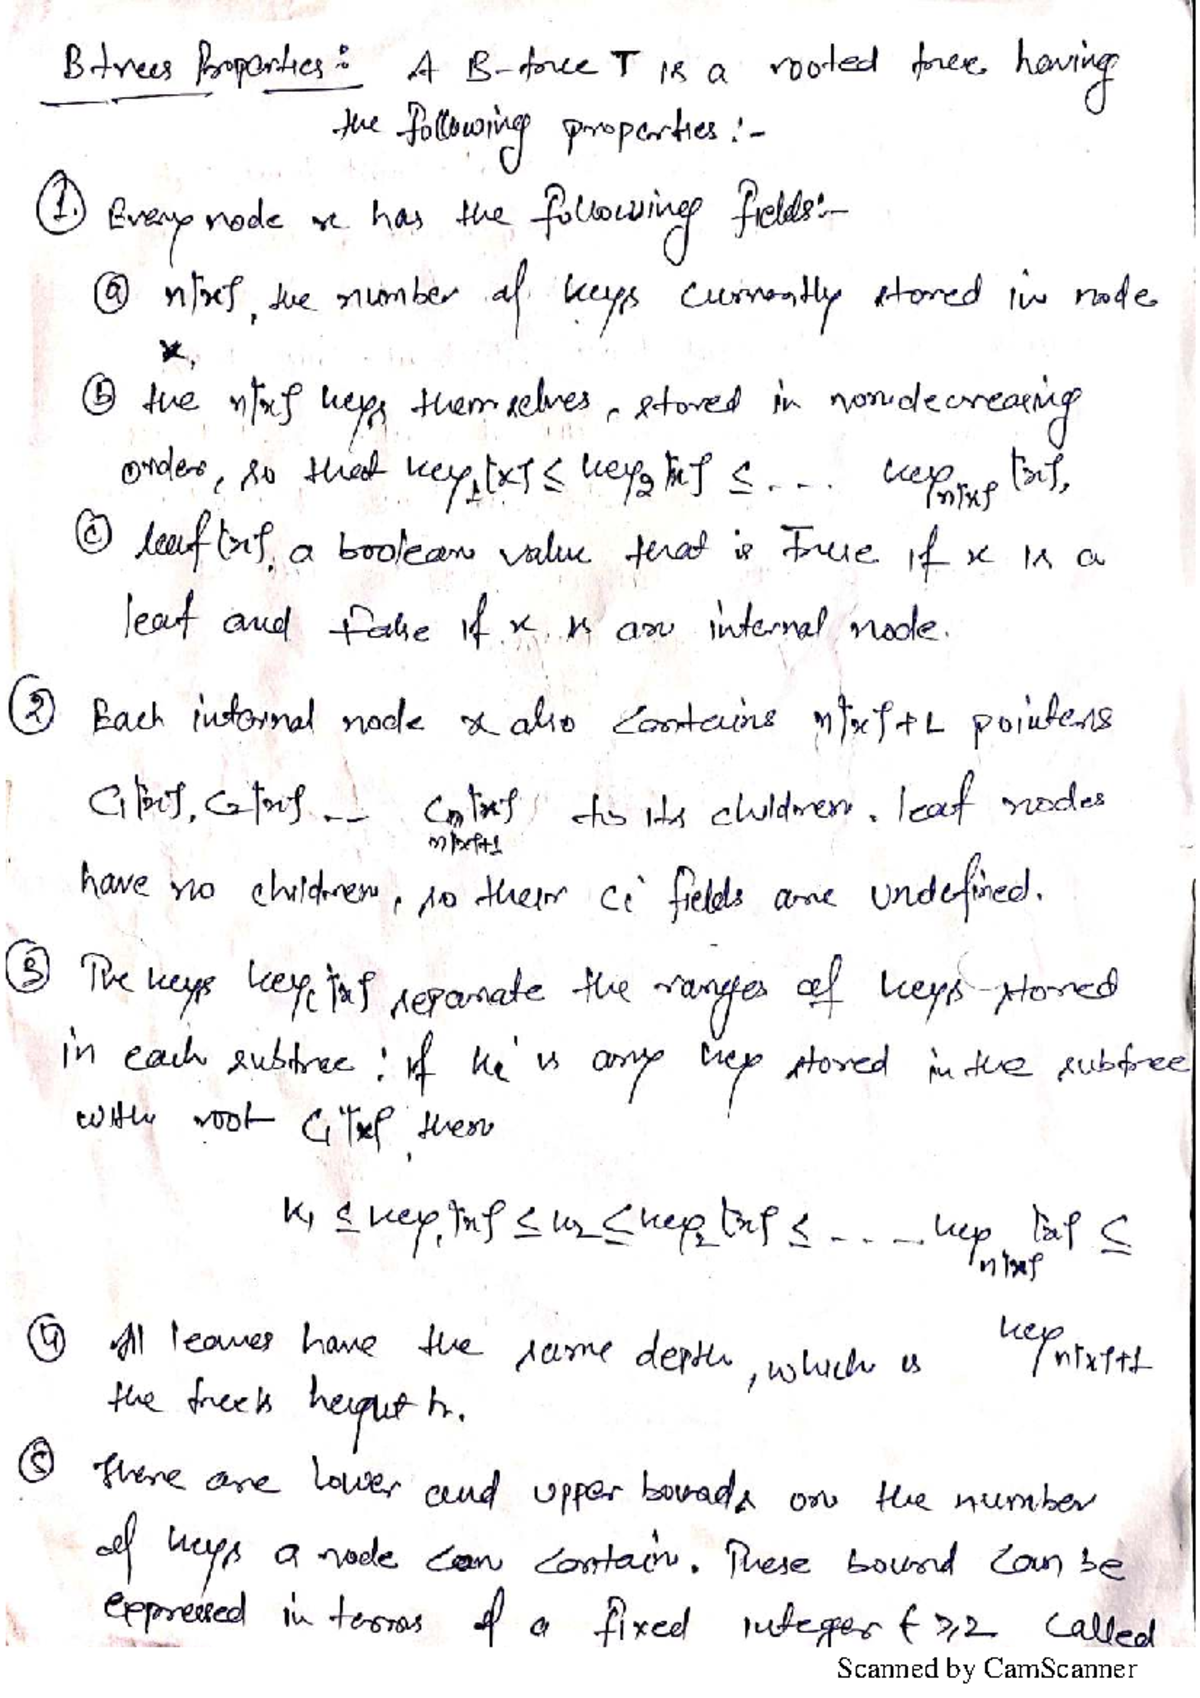 B-trees Properties: A B-tree T is a rooted tree having
the following properties:-
1. Every node x has the following fields:-
(a) n[x], the number of keys currently stored in node
x,
(b) the n[x] keys themselves, stored in nondecreasing
order, so that key₁[x] ≤ key₂[x] ≤ .... key n[x] [x],
(c) leaf[x], a boolean value that is True if x is a
leaf and false if x is an internal node.
(2) Each internal node x also contains n[x]+1 pointers
C₁[x], C₂[x] --- C n[x]+1 [x] to its children. leaf nodes
have no children, so their ci fields are undefined.
(3) The keys keyi[x] separate the ranges of keys stored
in each subtree: if ki is any key stored in the subtree
with root Ci[x], then
k₁ ≤ key₁[x] ≤ k₂ ≤ key₂[x] ≤ ..... key n[x] [x] ≤
key n[x]+1
(4) All leaves have the same depth, which is
the tree's height h.
(5) There are lower and upper bounds on the number
of keys a node can contain. These bound can be
expressed in terms of a fixed integer t ≥ 2 called
Scanned by CamScanner